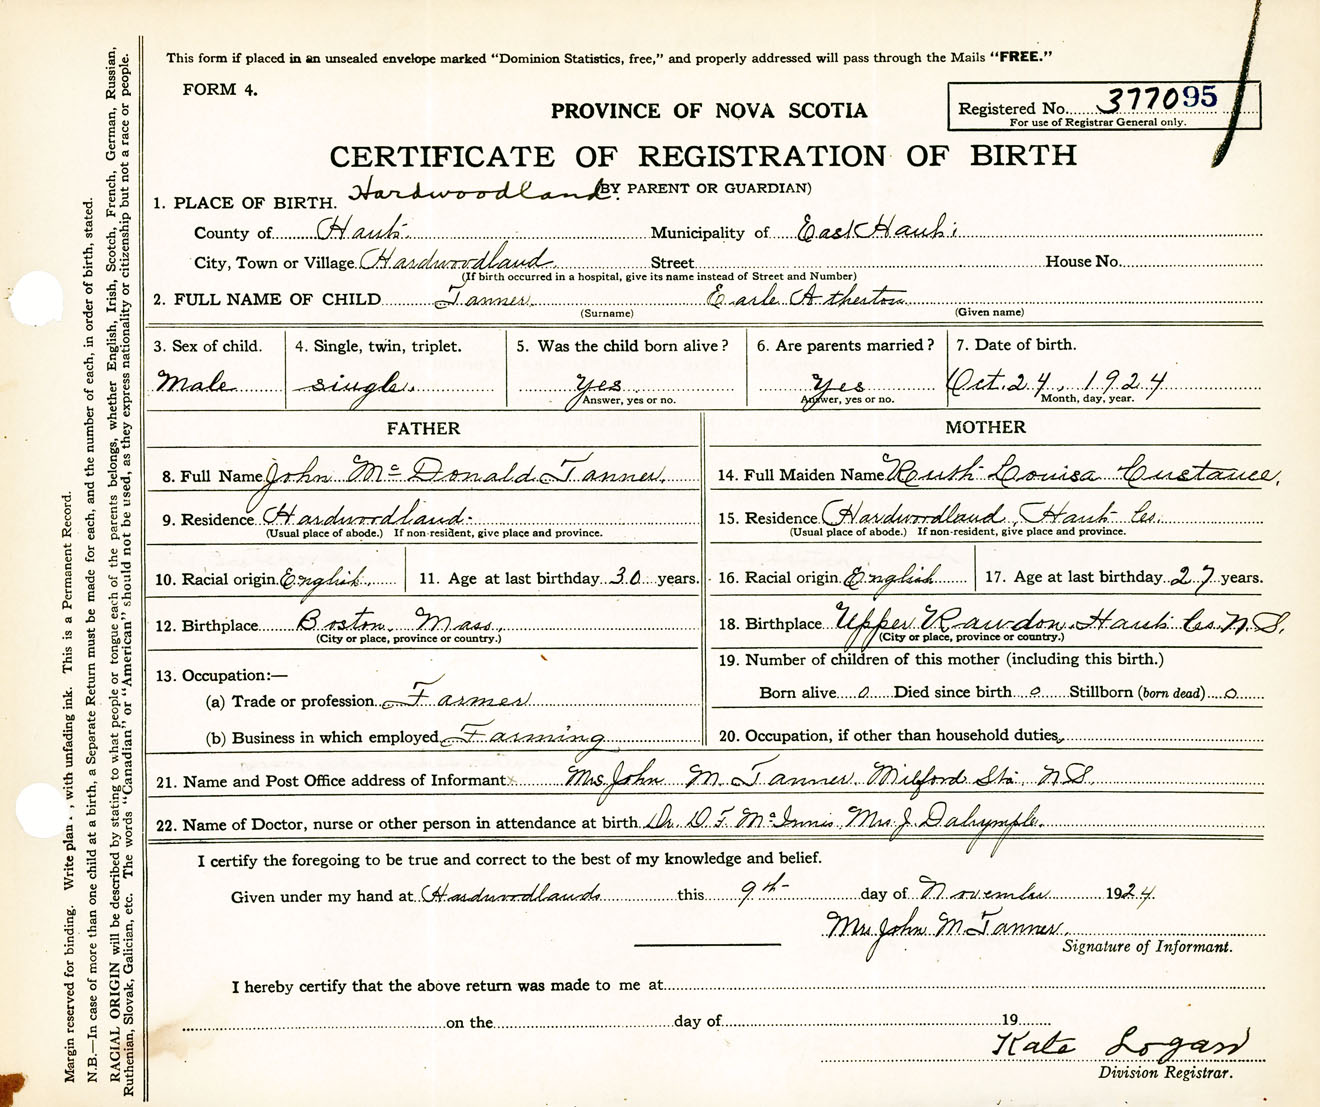 This form if placed in an unsealed envelope marked “Dominion Statistics, free,” and properly addressed will pass through the Mails “FREE.”
FORM 4.
Registered No. 377095
For use of Registrar General only.
PROVINCE OF NOVA SCOTIA
CERTIFICATE OF REGISTRATION OF BIRTH
(BY PARENT OR GUARDIAN)
1. PLACE OF BIRTH. Hardwoodland.
County of Hants. Municipality of East Hants.
City, Town or Village Hardwoodland Street House No.
(If birth occurred in a hospital, give its name instead of Street and Number)
2. FULL NAME OF CHILD Tanner Earle Atherton
(Surname) (Given name)
3. Sex of child. 4. Single, twin, triplet. 5. Was the child born alive? 6. Are parents married? 7. Date of birth.
Male single. Yes Yes Oct. 24, 1924
Answer, yes or no. Answer, yes or no. Month, day, year.
FATHER MOTHER
8. Full Name John Mc Donald Tanner. 14. Full Maiden Name Ruth Louisa Custance.
9. Residence Hardwoodland. 15. Residence Hardwoodland, Hants Co.
(Usual place of abode.) If non-resident, give place and province. (Usual place of abode.) If non-resident, give place and province.
10. Racial origin English. 11. Age at last birthday 30 years. 16. Racial origin English 17. Age at last birthday 27 years.
12. Birthplace Boston, Mass. 18. Birthplace Upper Rawdon, Hants Co. N.S.
(City or place, province or country.) (City or place, province or country.)
13. Occupation:— 19. Number of children of this mother (including this birth.)
(a) Trade or profession Farmer Born alive 0 Died since birth 0 Stillborn (born dead) 0
(b) Business in which employed Farming 20. Occupation, if other than household duties
21. Name and Post Office address of Informant Mrs. John M. Tanner Milford Sta. N.S.
22. Name of Doctor, nurse or other person in attendance at birth Dr. D.F. McInnis Mrs. J. Dalrymple.
I certify the foregoing to be true and correct to the best of my knowledge and belief.
Given under my hand at Hardwoodlands this 9th day of November 1924.
Mrs John M. Tanner.
Signature of Informant.
I hereby certify that the above return was made to me at
on the day of 19
Kate Logan
Division Registrar.
Margin reserved for binding. Write plain , with unfading ink. This is a Permanent Record.
N.B.—In case of more than one child at a birth, a Separate Return must be made for each, and the number of each, in order of birth, stated.
RACIAL ORIGIN will be described by stating to what people or tongue each of the parents belongs, whether English, Irish, Scotch, French, German, Russian,
Ruthenian, Slovak, Galician, etc. The words “Canadian” or “American” should not be used, as they express nationality or citizenship but not a race or people.